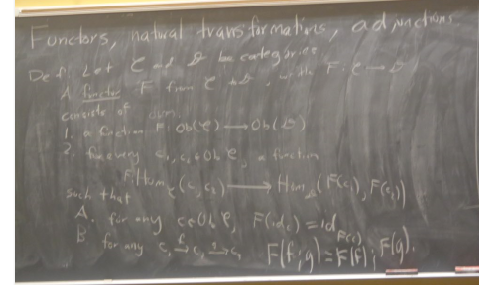 Functors, natural transformations, adjunctions
Def: Let C and D be categories.
A functor F from C to D, with F: C → D,
consists of
1. a function F: Ob(C) → Ob(D)
2. for every c₁, c₂ ∈ Ob C, a function
F: Hom_C(c₁, c₂) → Hom_D(F(c₁), F(c₂))
such that
A. for any c ∈ Ob C, F(id_c) = id_F(c)
B. for any c₁ →f c₂ →g c₃ F(f;g) = F(f); F(g).